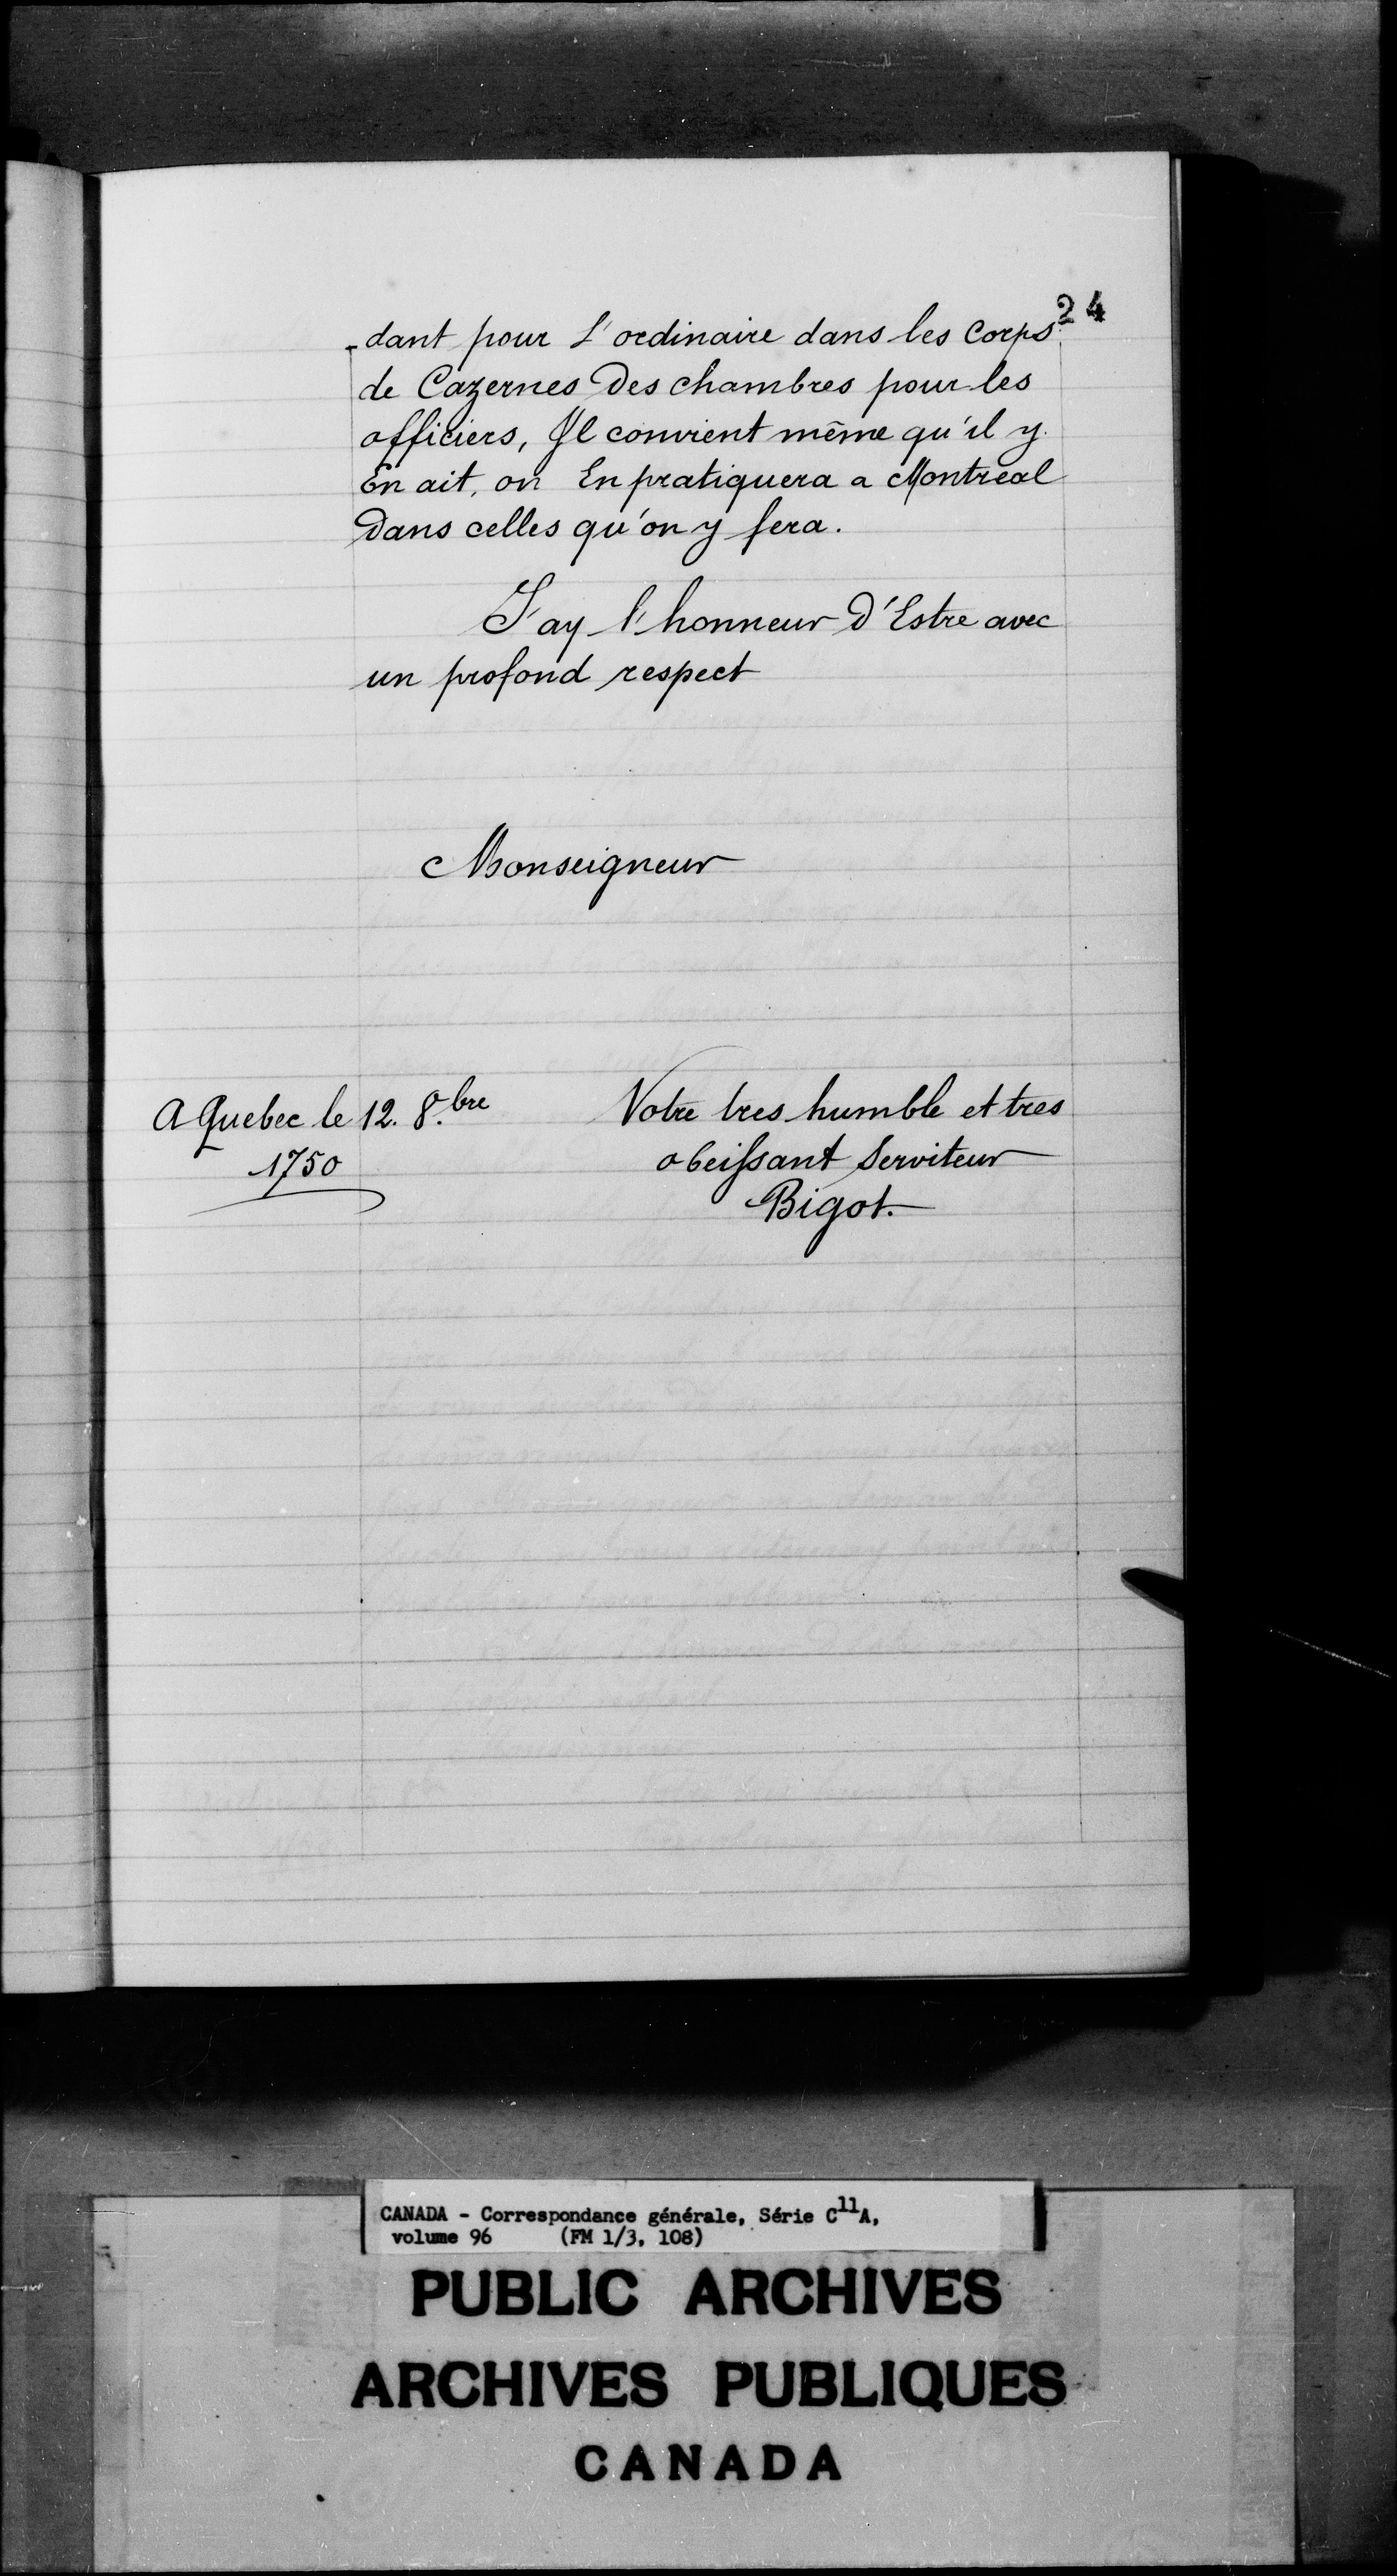 24
-dant pour L'ordinaire dans les Corps
de Cazernes Des chambres pour les
officiers, Il convient même qu'il y
En ait, on En pratiquera a Montreal
Dans celles qu'on y fera.
J'ay l'honneur D'Estre avec
un profond respect
Monseigneur
A Quebec le 12. 8.bre
1750
Votre tres humble et tres
obeissant Serviteur
Bigot.
CANADA - Correspondance générale, Série C11A,
volume 96 (FM 1/3, 108)
PUBLIC ARCHIVES
ARCHIVES PUBLIQUES
CANADA